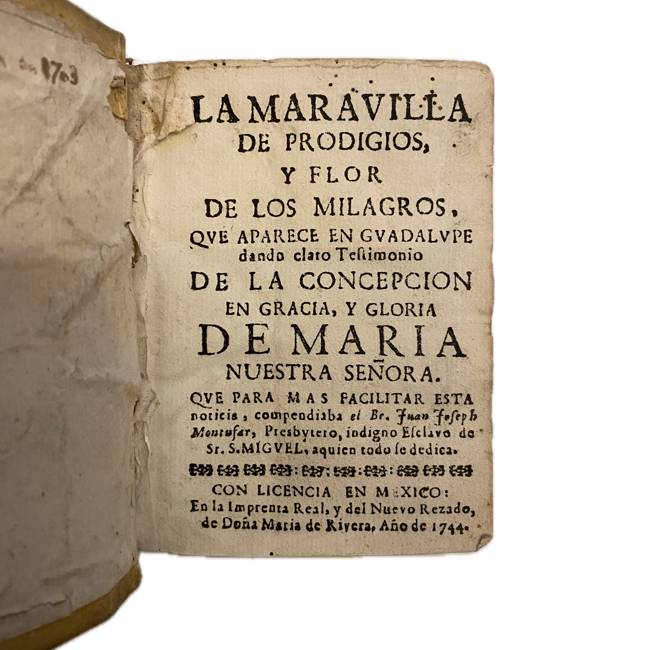 1703
LA MARAVILLA
DE PRODIGIOS,
Y FLOR
DE LOS MILAGROS,
QVE APARECE EN GVADALVPE
dando claro Teſtimonio
DE LA CONCEPCION
EN GRACIA, Y GLORIA
DE MARIA
NUESTRA SEÑORA.
QVE PARA MAS FACILITAR ESTA
noticia, compendiaba el Br. Juan Joſeph
Montufar, Presbytero, indigno Eſclavo de
Sr. S. MIGVEL, aquien todo ſe dedica.
CON LICENCIA EN MEXICO:
En la Imprenta Real, y del Nuevo Rezado,
de Doña Maria de Rivera, Año de 1744.